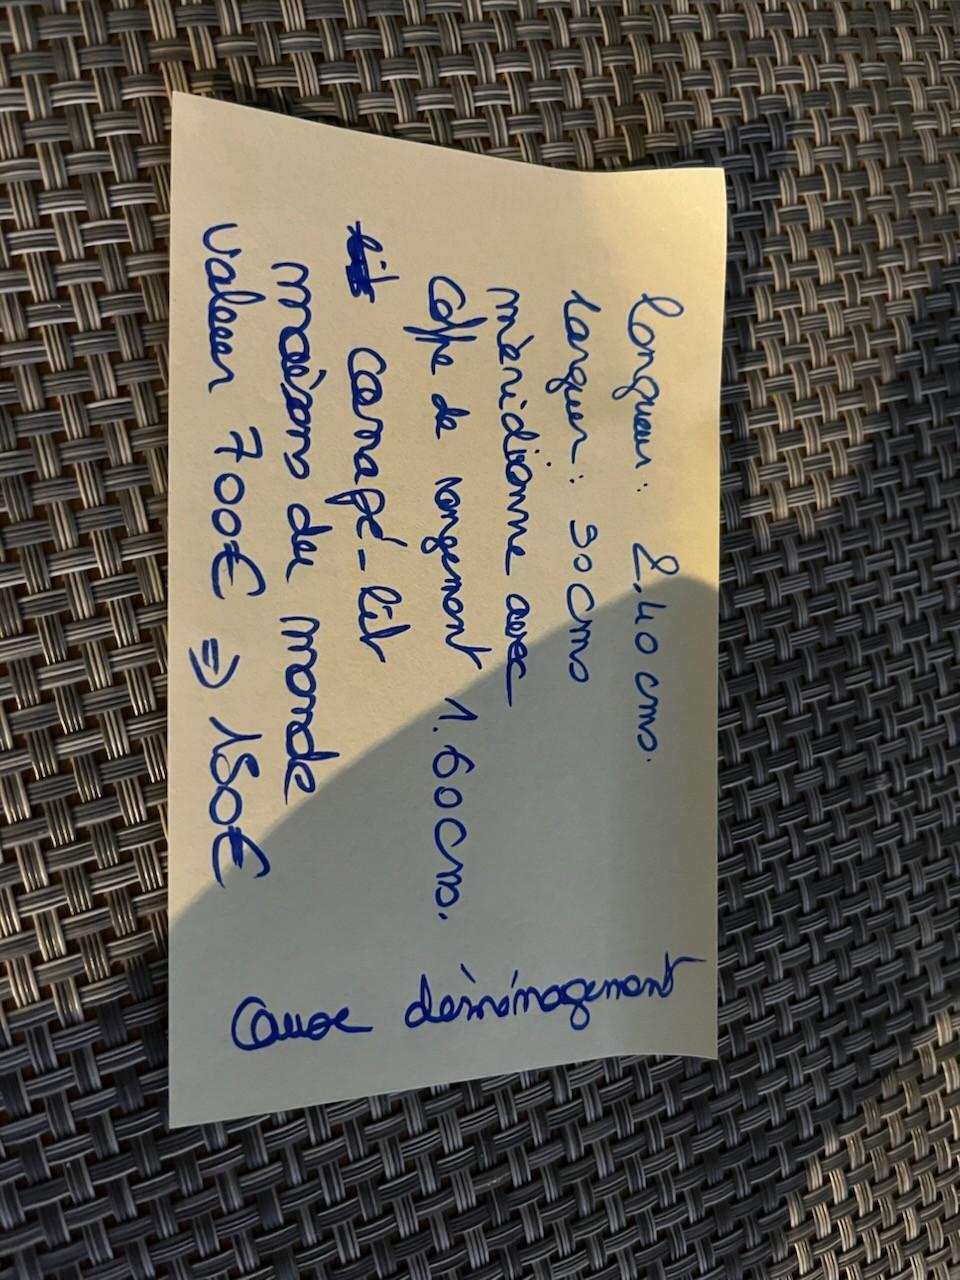 longueur : 2.40 cms.
largeur : 90 cms
méridienne avec
coffre de rangement 1.60 cms.
canapé-lit
maisons du monde
valeur 700€ => 150€
Cause déménagement